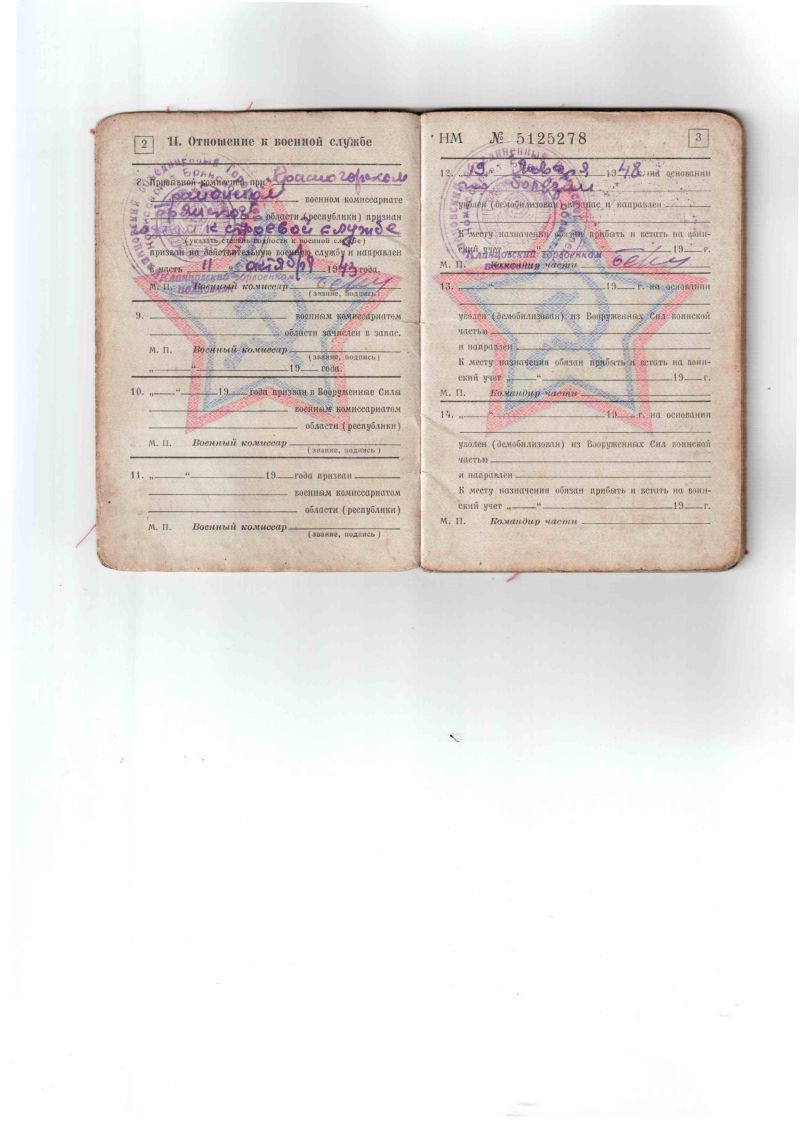 2
II. Отношение к военной службе
8. Призывной комиссией при Красногорском
районном военном комиссариате
Брянской области (республики) признан
к строевой службе
(указать степень годности к военной службе)
призван на действительную военную службу и направлен
в часть „11“ октября 1943 года.
М. П. Военный комиссар
Клинцовский горвоенком
(звание, подпись)
9.
военным комиссариатом
области зачислен в запас.
М. П. Военный комиссар
(звание, подпись)
„ “ 19 года.
10. „ “ 19 года призван в Вооруженные Силы
военным комиссариатом
области (республики)
М. П. Военный комиссар
(звание, подпись)
11. „ “ 19 года призван
военным комиссариатом
области (республики)
М. П. Военный комиссар
(звание, подпись)
НМ № 5125278
3
12. „19“ января 1948 г. на основании
по болезни
уволен (демобилизован) в запас и направлен
К месту назначения обязан прибыть и встать на воин-
ский учет „ “ г.
Клинцовский горвоенком
М. П. Командир части
13. „ “ 19 г. на основании
уволен (демобилизован) из Вооруженных Сил воинской
частью
и направлен
К месту назначения обязан прибыть и встать на воин-
ский учет „ “ 19 г.
М. П. Командир части
14. „ “ 19 г. на основании
уволен (демобилизован) из Вооруженных Сил воинской
частью
и направлен
К месту назначения обязан прибыть и встать на воин-
ский учет „ “ 19 г.
М. П. Командир части